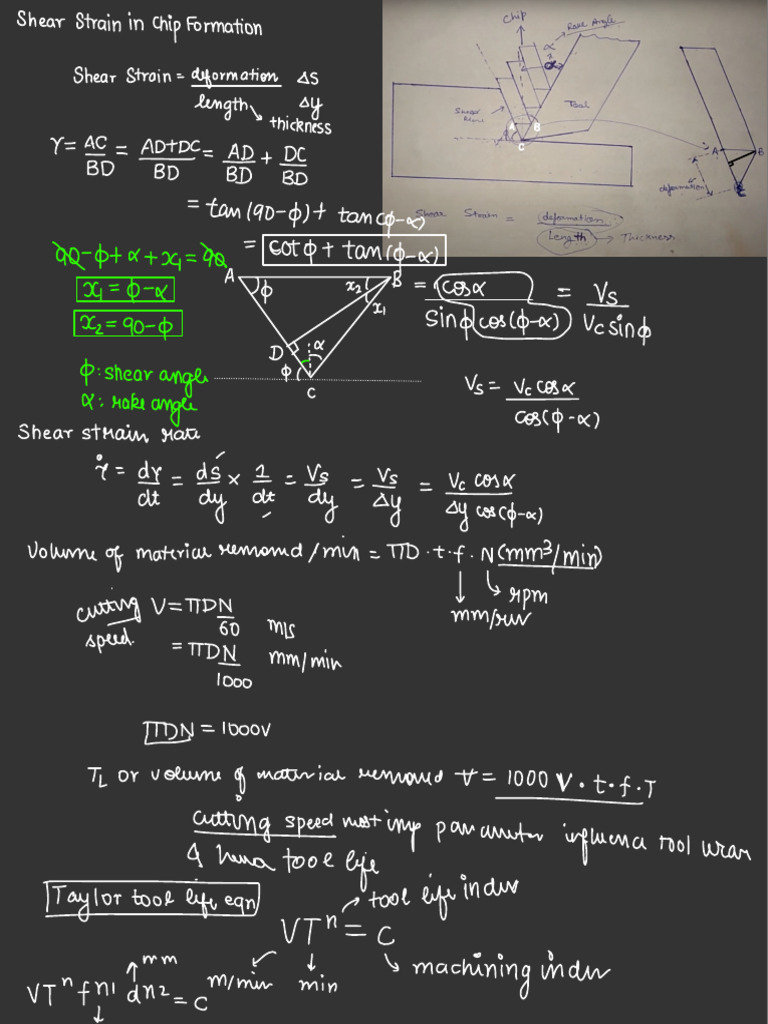 Shear Strain in Chip Formation
Shear Strain = deformation / length Δs / Δy
thickness
γ = AC/BD = (AD+DC)/BD = AD/BD + DC/BD
= tan(90-φ) + tan(φ-α)
= cotφ + tan(φ-α)
= cosα / (sinφ cos(φ-α)) = Vs / (Vc sinφ)
Vs = Vc cosα / cos(φ-α)
90-φ+α+x1 = 90
x1 = φ-α
x2 = 90-φ
φ: shear angle
α: rake angle
A B C D
φ x2 x1 α φ
Chip
Rake Angle
α
Tool
Shear
A B C
A B
deformation
Shear Strain = deformation / Length → Thickness
Shear strain rate
γ̇ = dγ/dt = ds/dy × 1/dt = Vs/dy = Vs/Δy = Vc cosα / (Δy cos(φ-α))
Volume of material removed/min = ΠD·t·f·N (mm³/min)
rpm
mm/rev
cutting speed. V = ΠDN/60 m/s
= ΠDN/1000 mm/min
ΠDN = 1000V
TL or volume of material removed V = 1000 V·t·f·T
cutting speed most imp parameter influence tool wear
& hence tool life
Taylor tool life eqn
→ tool life index
VTⁿ = C
m/min min machining index
mm
VTⁿ fⁿ¹ dⁿ² = C